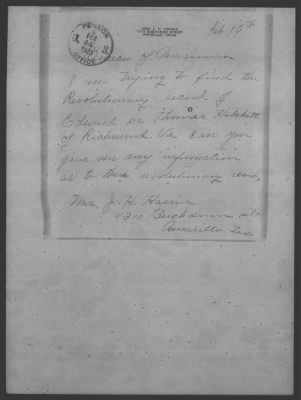 PENSION
FEB
OFFICE
MRS. J. H. HARRIS
AMARILLO, TEXAS
Feb 16th
Bureau of Pensions
I am trying to find the
Revolutionary record of
Edward or Thomas
of Richmond. Va. Can you
give me any information
as to their revolutionary record,
Mrs. J. H. Harris
Buchanan St.
Amarillo Tex.